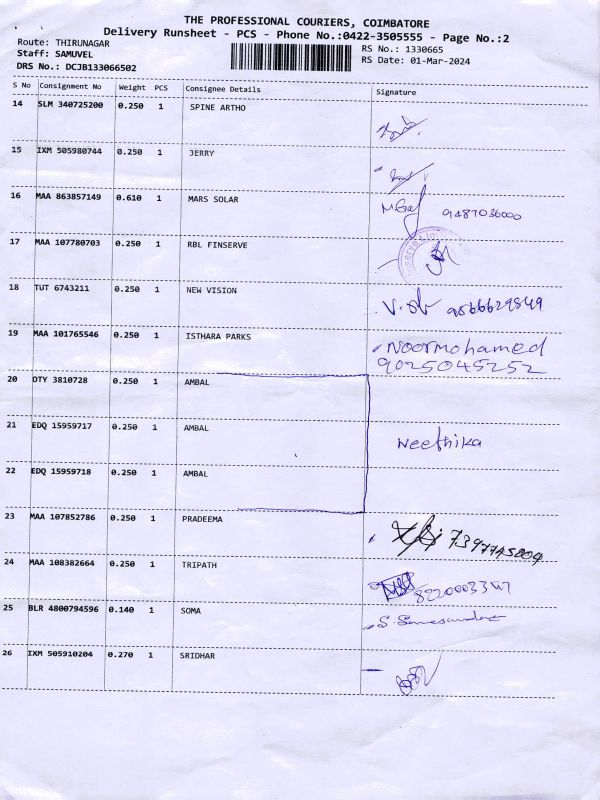 THE PROFESSIONAL COURIERS, COIMBATORE
Delivery Runsheet - PCS - Phone No.:0422-3505555 - Page No.:2
Route: THIRUNAGAR
RS No.: 1330665
Staff: SAMUVEL
RS Date: 01-Mar-2024
DRS No.: DCJB133066502
S No Consignment No Weight PCS Consignee Details Signature
14 SLM 340725200 0.250 1 SPINE ARTHO
15 IXM 505980744 0.250 1 JERRY
16 MAA 863857149 0.610 1 MARS SOLAR 9487036000
17 MAA 107780703 0.250 1 RBL FINSERVE
18 TUT 6743211 0.250 1 NEW VISION 9566629849
19 MAA 101765546 0.250 1 ISTHARA PARKS Noormohamed
9025045252
20 DTY 3810728 0.250 1 AMBAL
21 EDQ 15959717 0.250 1 AMBAL Neethika
22 EDQ 15959718 0.250 1 AMBAL
23 MAA 107852786 0.250 1 PRADEEMA 7397745804
24 MAA 108382664 0.250 1 TRIPATH
25 BLR 4800794596 0.140 1 SOMA
26 IXM 505910204 0.270 1 SRIDHAR